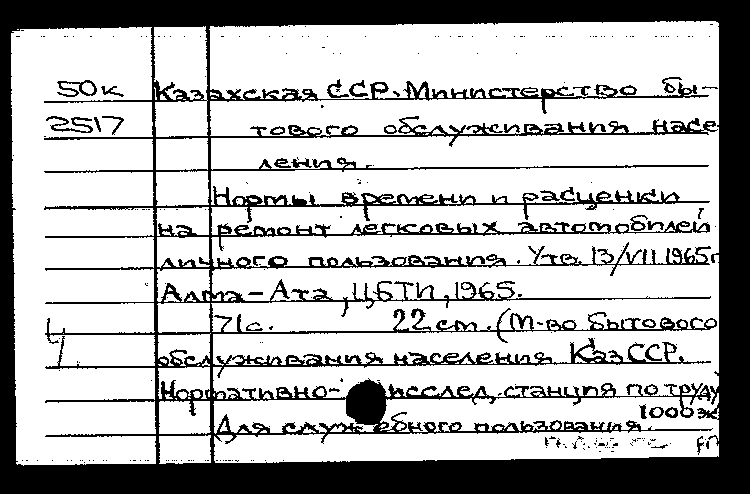 50к Казахская ССР. Министерство бы-
2517 тового обслуживания насе
ления.
Нормы времени и расценки
на ремонт легковых автомобилей
личного пользования. Утв. 13/VII 1965г
Алма-Ата, ЦБТИ, 1965.
71с. 22 см. (М-во бытового
обслуживания населения КазССР.
Нормативно-исслед. станция по труду
1000 эк
Для служебного пользования.